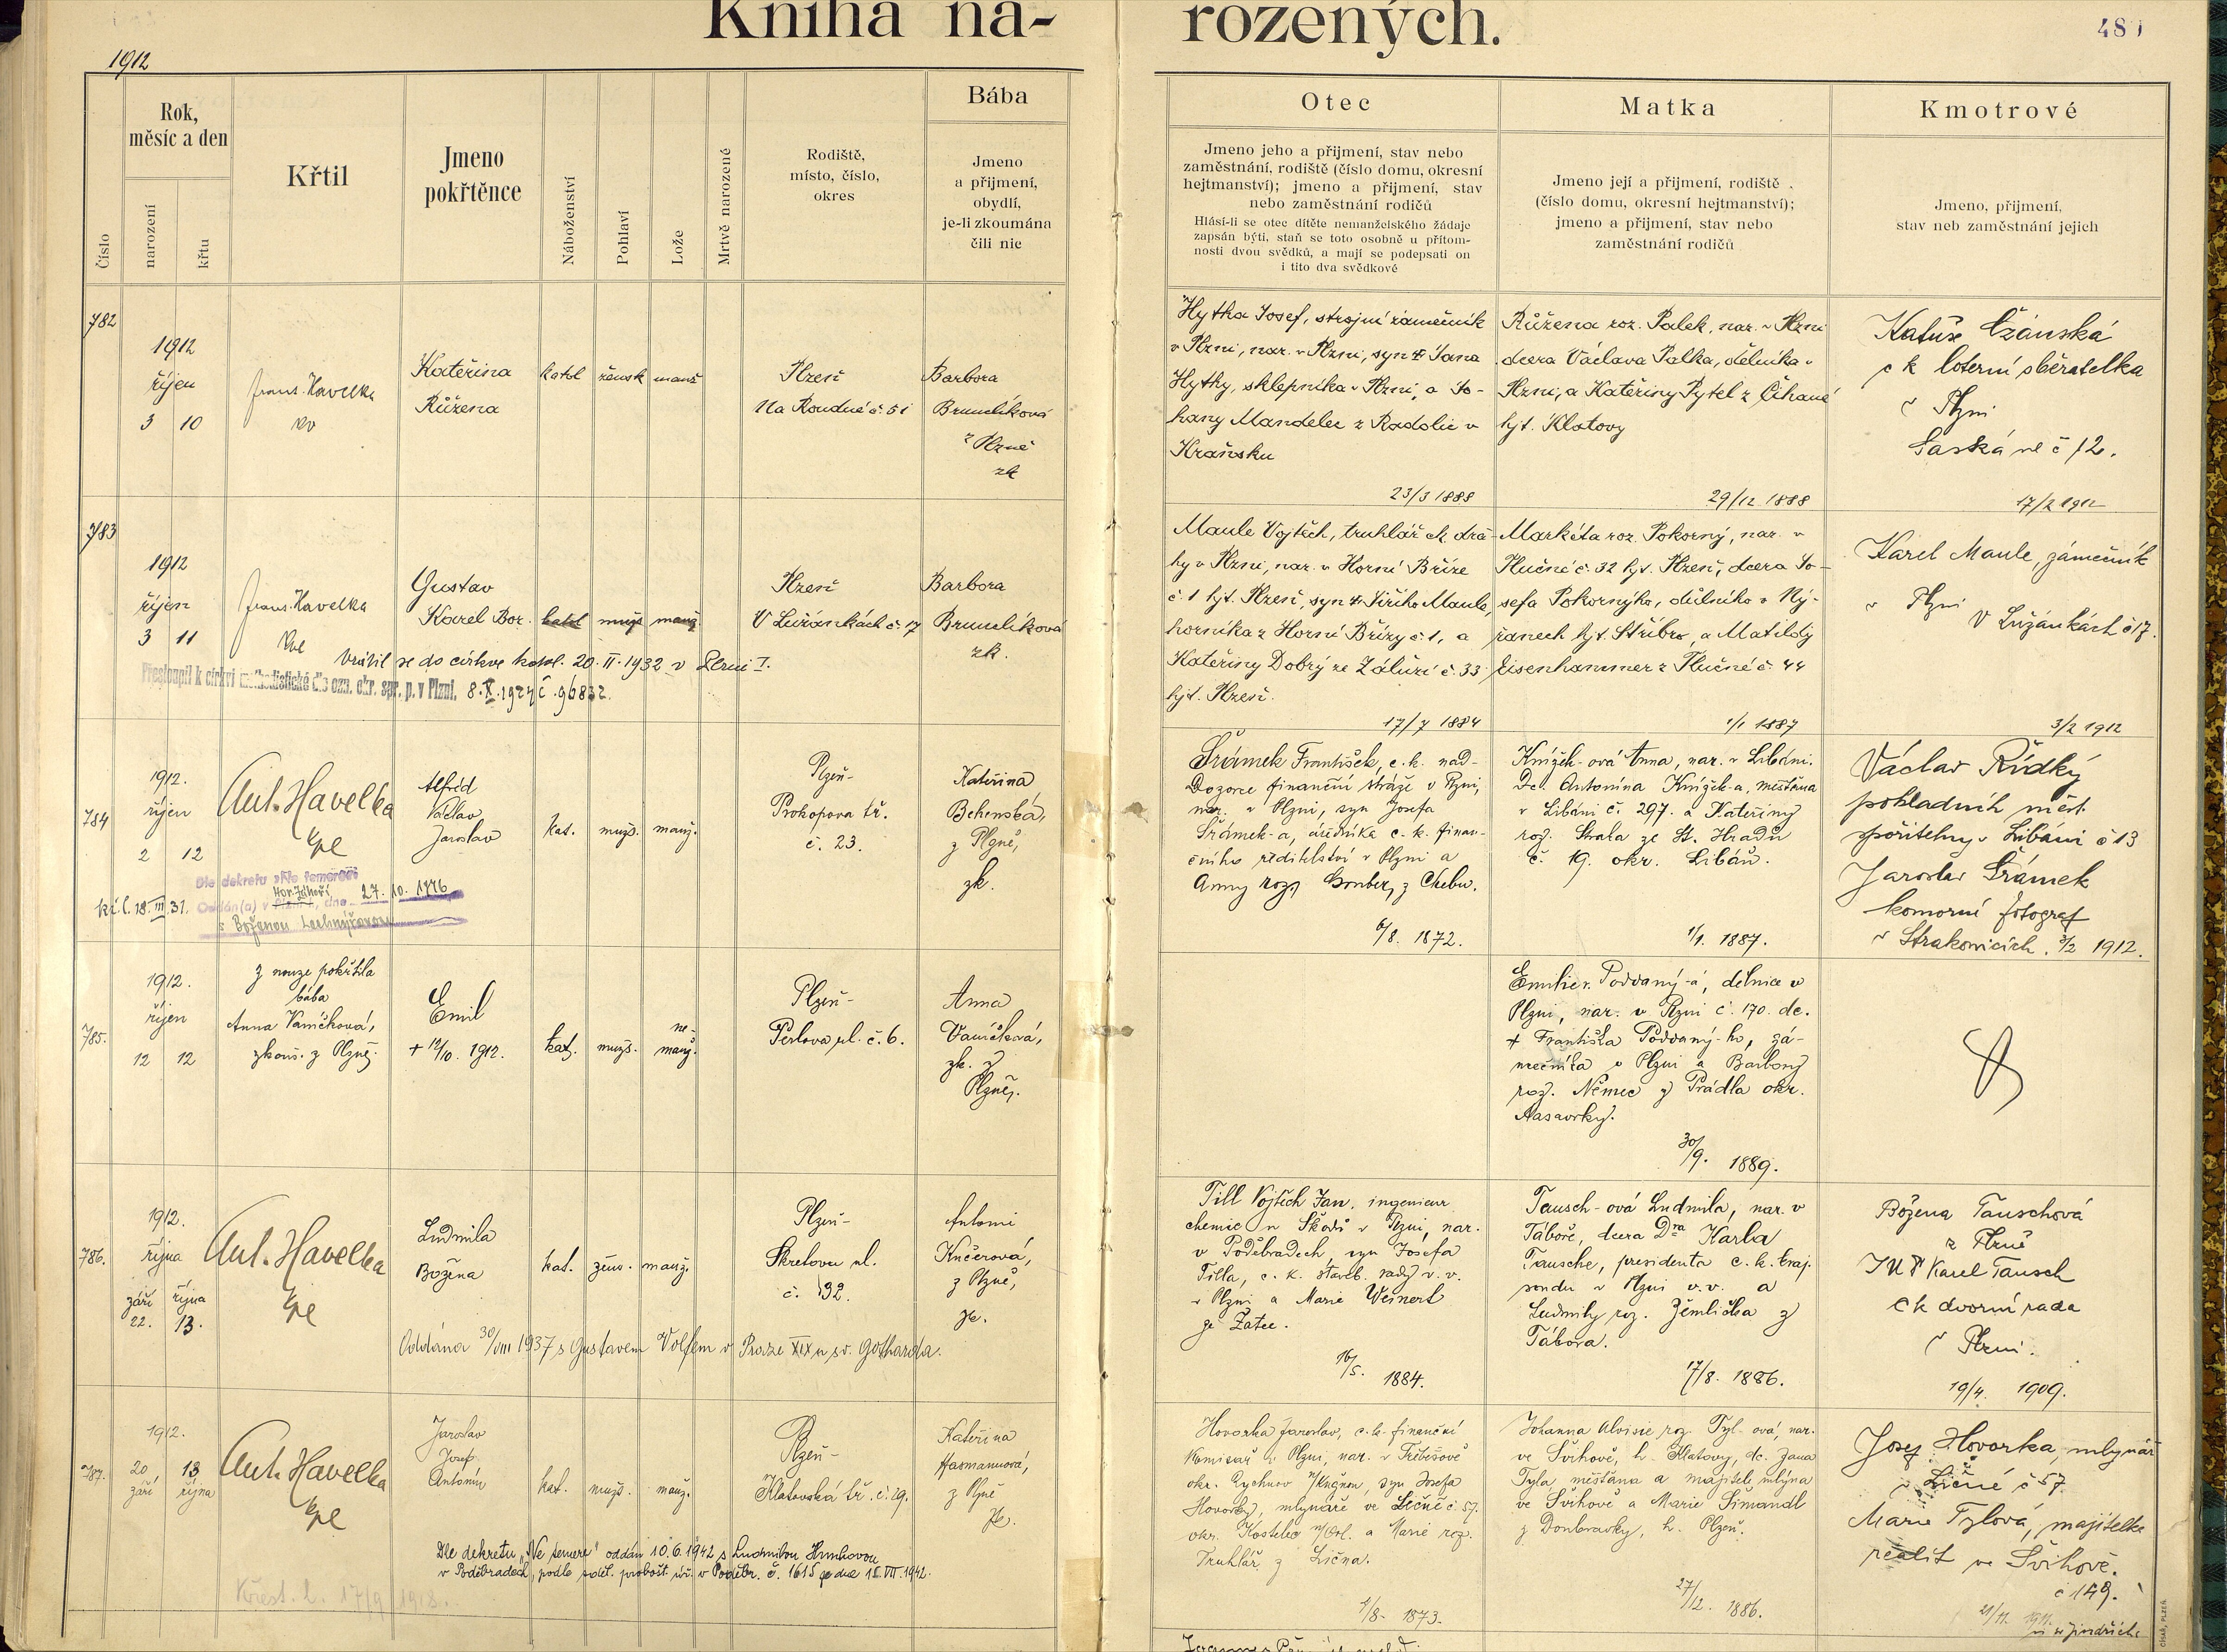 Kniha na-
rozených.
1912
Rok,
měsíc a den
Číslo
narození
křtu
Křtil
Jmeno
pokřtěnce
Náboženství
Pohlaví
Lože
Mrtvě narozené
Rodiště,
místo, číslo,
okres
Bába
Jmeno
a přijmení,
obydlí,
je-li zkoumána
čili nic
Otec
Jmeno jeho a přijmení, stav nebo
zaměstnání, rodiště (číslo domu, okresní
hejtmanství); jmeno a přijmení, stav
nebo zaměstnání rodičů
Hlásí-li se otec dítěte nemanželského žádaje
zapsán býti, staň se toto osobně u přítom-
nosti dvou svědků, a mají se podepsati on
i tito dva svědkové
Matka
Jmeno její a přijmení, rodiště
(číslo domu, okresní hejtmanství);
jmeno a přijmení, stav nebo
zaměstnání rodičů
Kmotrové
Jmeno, přijmení,
stav neb zaměstnání jejich
782
1912
říjen
3 10
Frant. Havelka
Kateřina
Růžena
katol žensk manž
Plzeň
Na Roudné č. 51
Barbora
Brumlíková
z Plzně
zk
Hytha Josef, strojní zámečník
v Plzni, nar. v Plzni, syn † Jana
Hythy, sklepníka v Plzni, a Jo-
hany Mandelec z Radolic v
Kraňsku
23/3 1888
Růžena roz. Palek, nar. v Plzni
dcera Václava Palka, dělníka v
Plzni, a Kateřiny Pytel z Čihaně
hjt. Klatovy
29/12 1888
c k loterní sběratelka
v Plzni
Saská ul č 12.
17/2 1912
783
1912
říjen
3 11
Frant. Havelka
kpl
Gustav
Karel Bor.
katol mužs manž
Plzeň
V Lužánkách č. 17
Barbora
Brumlíková
zk.
Vrátil se do církve katol. 20. II. 1932 v Plzni I.
Přestoupil k církvi methodistické dle ozn. okr. spr. p. v Plzni. 8. X. 1924 č. 96832.
Maule Vojtěch, truhlář ck drá-
hy v Plzni, nar. v Horní Bříze
č. 1 hjt. Plzeň, syn † Jiřího Maule,
horníka z Horní Břízy č. 1, a
Kateřiny Dobrý ze Záluží č. 33
hjt. Plzeň.
17/7 1884
Markéta roz. Pokorný, nar. v
Hlučné č. 32 hjt. Plzeň, dcera Jo-
sefa Pokorného, důlního v Ný-
řanech hjt. Stříbro, a Matildy
Eisenhammer z Hlučné č. 44
1/1 1887
Karel Maule, zámečník
v Plzni V Lužánkách č 17.
3/2 1912
784
1912.
říjen
2 12
Ant. Havelka
kpl
Alfréd
Václav
Jaroslav
kat. mužs. manž.
Plzeň-
Prokopova tř.
č. 23.
Kateřina
Behenská,
z Plzně,
zk.
kř. l. 18. III. 31.
Dle dekretu »Ne temere«
Hor. Záhoří
Oddán(a) v Plzni, dne 27. 10. 1946
s Boženou
Šrámek František, c. k. nad-
Dozorce finanční stráže v Plzni,
nar. v Plzni, syn Josefa
Šrámek-a, úředníka c. k. finan-
čního ředitelství v Plzni a
Anny roz. z Chebu.
6/8. 1872.
Knížek-ová Anna, nar. v Libáni.
Dc. Antonína Knížek-a, měšťana
v Libáni č. 297. a Kateřiny
roz. Straka ze St. Hradů
č. 19. okr. Libáň.
1/1. 1887.
Václav Řídký
pokladník měst.
spořitelny v Libáni č 13
Jaroslav Šrámek
komorní fotograf
v Strakonicích. 3/2 1912.
785.
1912.
říjen
12 12
z nouze pokřtila
bába
Anna Vaníčková,
zkouš. z Plzně.
Emil
+ 12/10. 1912.
kat. mužs. ne-
manž.
Plzeň-
Perlova ul. č. 6.
Anna
Vaníčková,
zk. z
Plzně.
Emilie r. Poddaný-á, dělnice v
Plzni, nar. v Plzni č. 170. dc.
+ Františka Poddaný-ho, zá-
mečníka v Plzni a Barbory
roz. Němec z Prádla okr.
30/9. 1889.
786.
1912.
října
září října
22. 13.
Ant. Havelka
kpl
Ludmila
Božena
kat. žens. manž.
Plzeň-
Škretova ul.
č. 32.
Antonie
Kučerová,
z Plzně,
zk.
Oddána 30/VIII 1937 s Gustavem Volfem v Praze XIX u sv. Gotharda.
Till Vojtěch Jan, ingenieur
chemie u Škodů v Plzni, nar.
v Poděbradech, syn Josefa
Tilla, c. k. staveb. rady v. v.
v Plzni a Marie Weinert
ze Žatce.
16/5. 1884.
Tausch-ová Ludmila, nar. v
Táboře, dcera Dra Karla
Tausche, presidenta c. k. kraj.
soudu v Plzni v. v. a
Ludmily roz. Zemlička z
Tábora.
17/8. 1886.
Božena Tauschová
z Plzně
JUDr Karel Tausch
ck dvorní rada
v Plzni.
19/4. 1909.
787.
1912.
20 13
září října
Ant. Havelka
kpl
Jaroslav
Josef,
Antonín
kat. mužs. manž.
Plzeň-
Klatovská tř. č. 29.
Kateřina
Hasmannová,
z Plzně
zk.
Dle dekretu „Ne temere" oddán 10. 6. 1942 s Ludmilou
v Poděbradech, podle sděl. probošt. úř. v Poděbr. č. 1615 ze dne 15. VII. 1942.
Křest. l. 17/9 1918.
Hovorka Jaroslav, c. k. finanční
komisař v Plzni, nar. v Třebešově
okr. Rychnov n/Kněžnou, syn Josefa
Hovorky, mlynáře ve Ličně č. 57.
okr. Kostelec n/Orl. a Marie roz.
Truhlář z Lična.
1/8. 1873.
Johanna Aloisie roz. Tyl-ová, nar.
ve Švihově, h. Klatovy, dc. Jana
Tyla měšťana a majitele mlýna
ve Švihově a Marie Šimandl
z Doubravky, h. Plzeň.
27/12. 1886.
Josef Hovorka, mlynář
v Ličně č 57.
Marie Tylová, majitelka
realit ve Švihově.
č 149.
21/11. 1911.